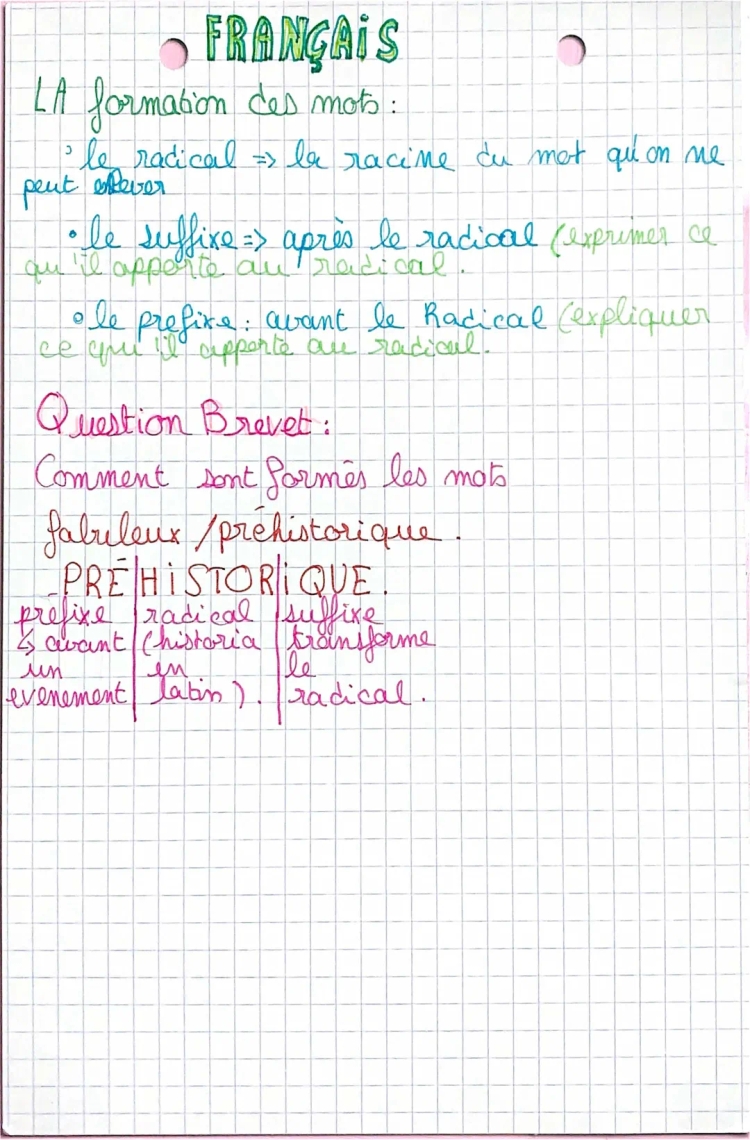 FRANÇAIS
LA formation des mots :
• le radical => la racine du mot qu'on ne
peut enlever
• le suffixe => après le radical (exprimer ce
qu'il apporte au radical.
• le prefixe : avant le Radical (expliquer
ce qu'il apporte au radical.
Question Brevet :
Comment sont formés les mots
fabuleux / préhistorique .
PRÉ|HiSTOR|iQUE.
préfixe radical suffixe
↳ avant (historia transforme
un en le
evenement latin ) . radical .